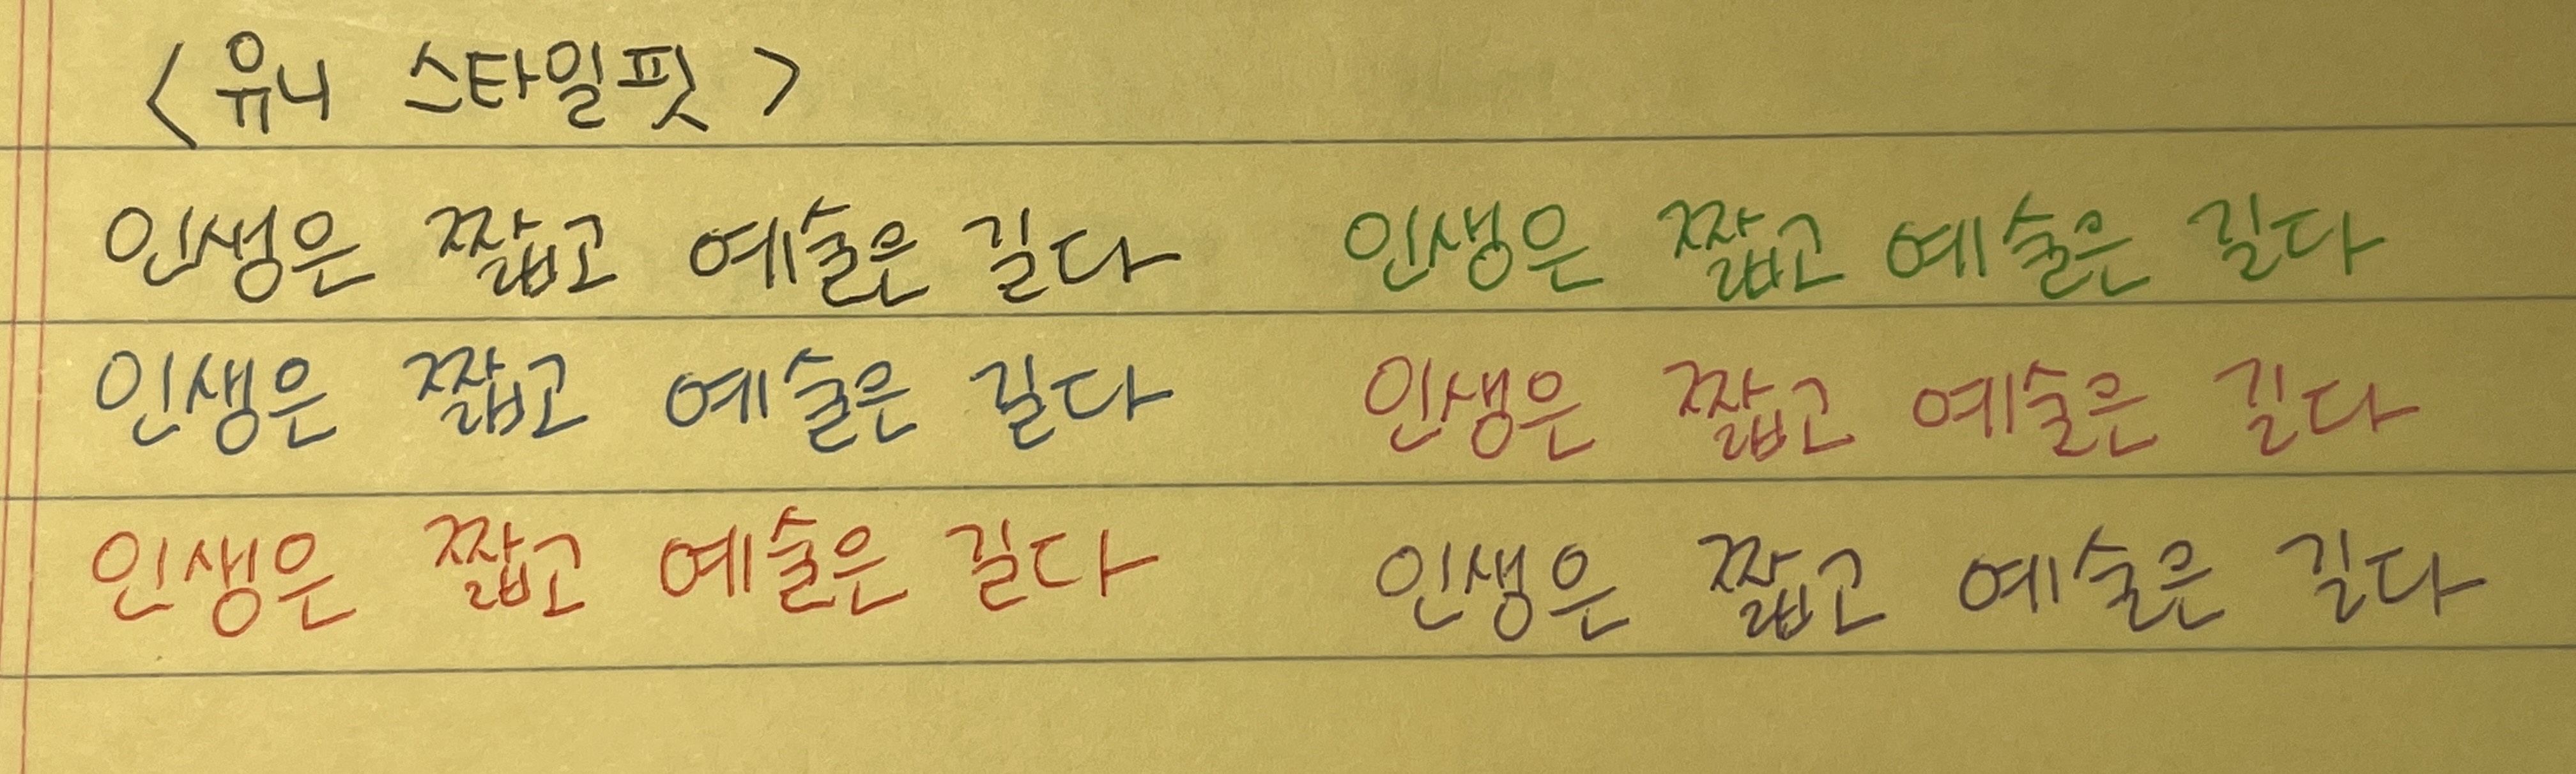 <유니 스타일핏>
인생은 짧고 예술은 길다 인생은 짧고 예술은 길다
인생은 짧고 예술은 길다 인생은 짧고 예술은 길다
인생은 짧고 예술은 길다 인생은 짧고 예술은 길다